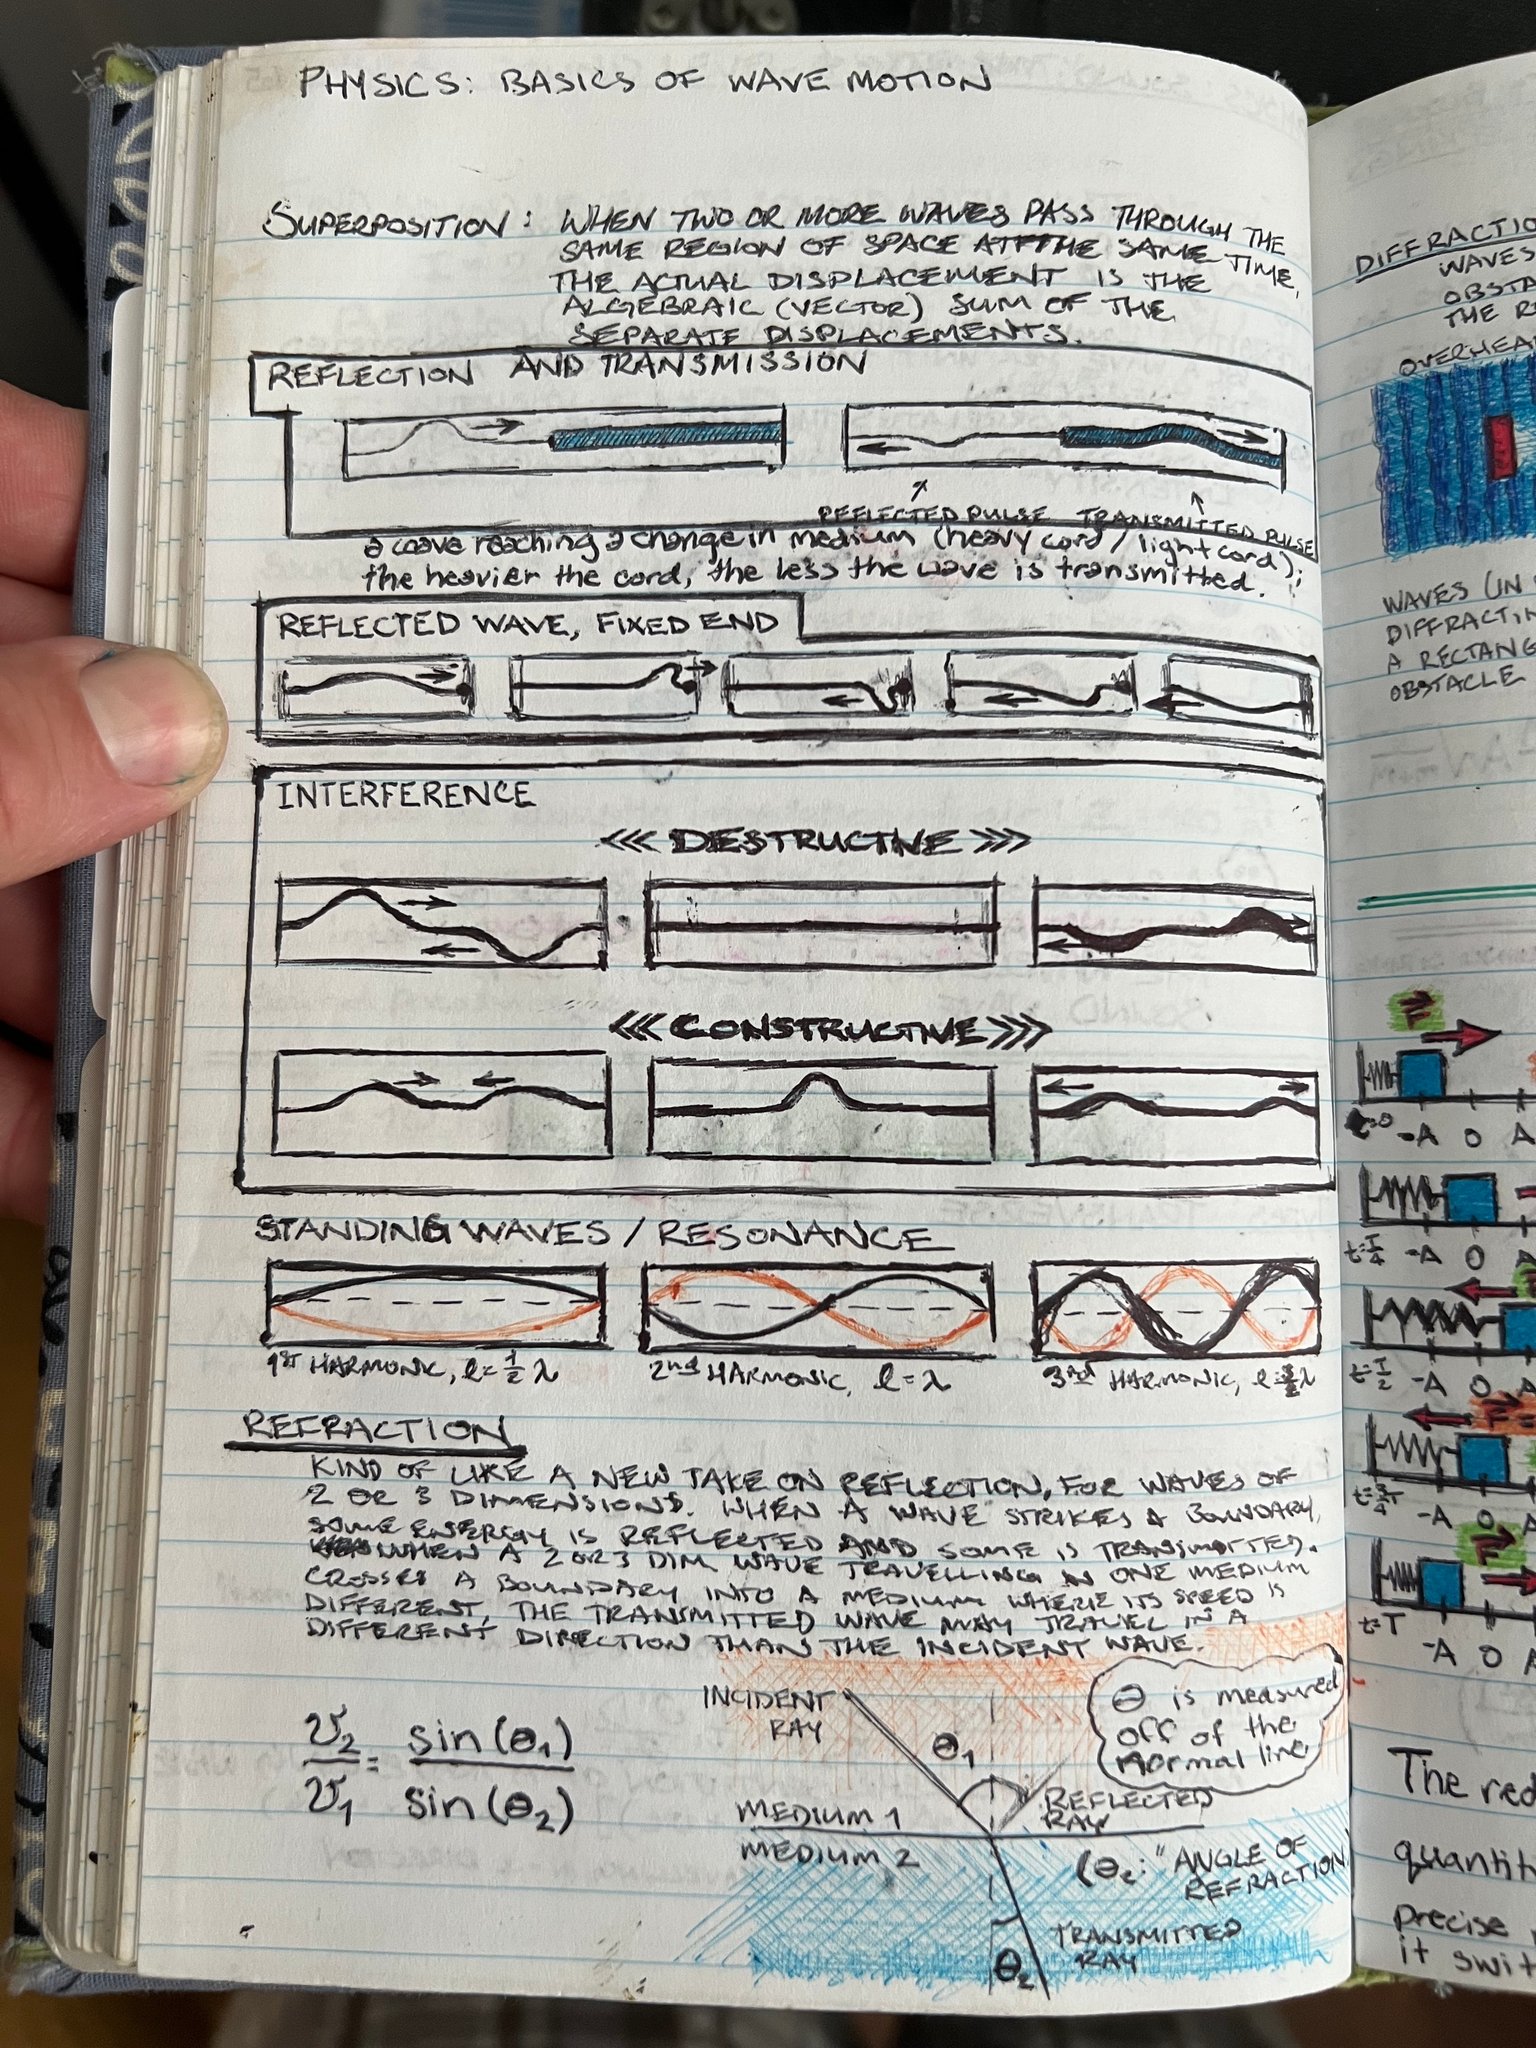 PHYSICS: BASICS OF WAVE MOTION
SUPERPOSITION: WHEN TWO OR MORE WAVES PASS THROUGH THE
SAME REGION OF SPACE AT THE SAME TIME,
THE ACTUAL DISPLACEMENT IS THE
ALGEBRAIC (VECTOR) SUM OF THE
SEPARATE DISPLACEMENTS.
REFLECTION AND TRANSMISSION
REFLECTED PULSE TRANSMITTED PULSE
a wave reaching a change in medium (heavy cord / light cord);
the heavier the cord, the less the wave is transmitted.
REFLECTED WAVE, FIXED END
INTERFERENCE
<<< DESTRUCTIVE >>>
<<< CONSTRUCTIVE >>>
STANDING WAVES / RESONANCE
1ST HARMONIC, ℓ = 1/2 λ
2nd HARMONIC, ℓ = λ
3rd HARMONIC, ℓ = 3/2 λ
REFRACTION
KIND OF LIKE A NEW TAKE ON REFLECTION, FOR WAVES OF
2 OR 3 DIMENSIONS. WHEN A WAVE STRIKES A BOUNDARY,
SOME ENERGY IS REFLECTED AND SOME IS TRANSMITTED.
WHEN A 2 OR 3 DIM WAVE TRAVELLING IN ONE MEDIUM
CROSSES A BOUNDARY INTO A MEDIUM WHERE ITS SPEED IS
DIFFERENT, THE TRANSMITTED WAVE MAY TRAVEL IN A
DIFFERENT DIRECTION THAN THE INCIDENT WAVE.
v2/v1 = sin(θ1)/sin(θ2)
INCIDENT
RAY
θ1
θ is measured
off of the
normal line
MEDIUM 1
REFLECTED
RAY
MEDIUM 2
(θ2: "ANGLE OF
REFRACTION
TRANSMITTED
RAY
θ2
DIFFRACTIO
WAVES
OBSTA
THE R
OVERHEA
WAVES (IN
DIFFRACTIN
A RECTANG
OBSTACLE
F
t=0 -A 0 A
t=T/4 -A 0 A
t=T/2 -A 0 A
F =
t=3/4 T -A 0 A
F
t=T -A 0 A
The red
quantit
precise
it swit